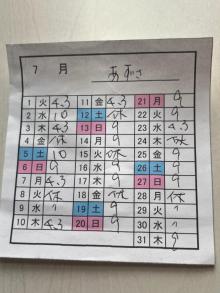 7 月 あずさ
1 火 4.3 11 金 4.3 21 月 9
2 水 10 12 土 休 22 火 9
3 木 4.3 13 日 9 23 水 4.3
4 金 休 14 月 9 24 木 休
5 土 10 15 火 休 25 金 9
6 日 9 16 水 9 26 土 9
7 月 4.3 17 木 9 27 日 9
8 火 休 18 金 休 28 月 休
9 水 〃 19 土 9 29 火 〃
10 木 4.3 20 日 9 30 水 〃
31 木 9